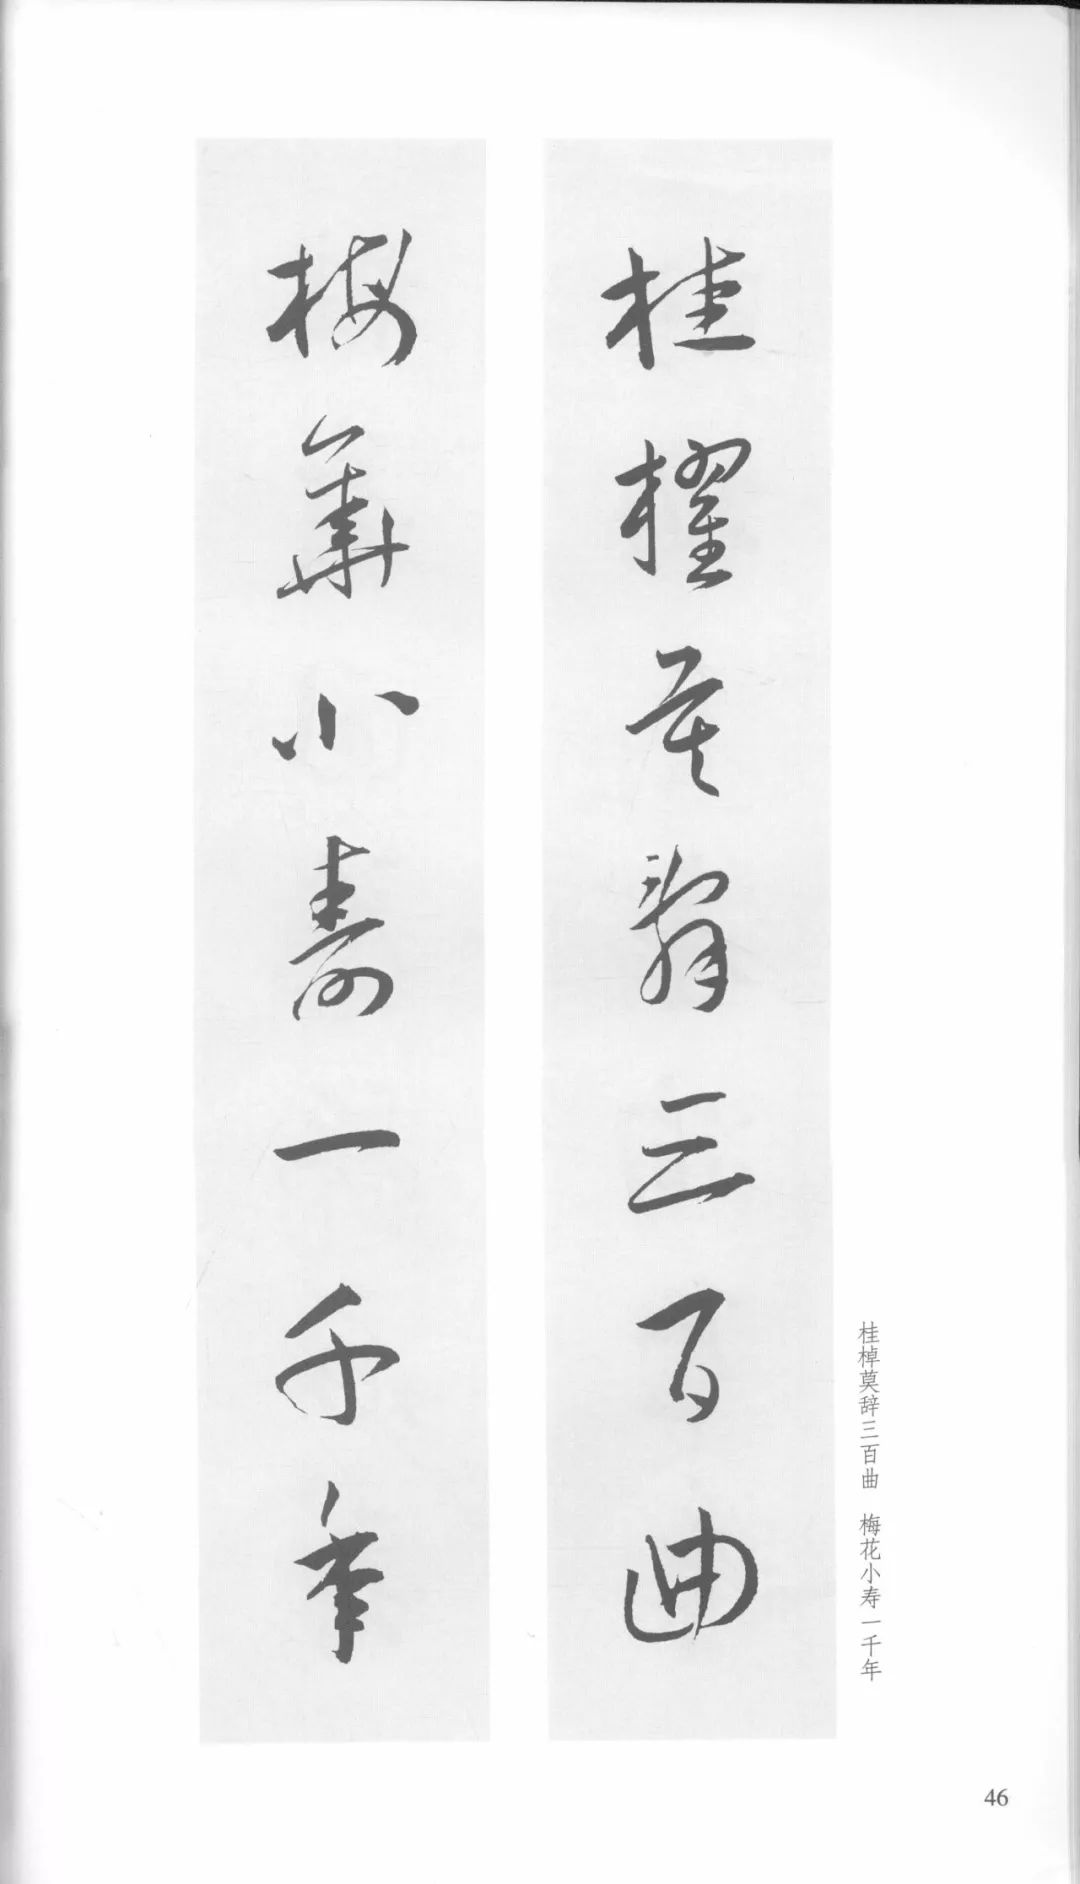 桂櫂莫辭三百曲
梅華小壽一千年
桂棹莫辞三百曲　梅花小寿一千年
46